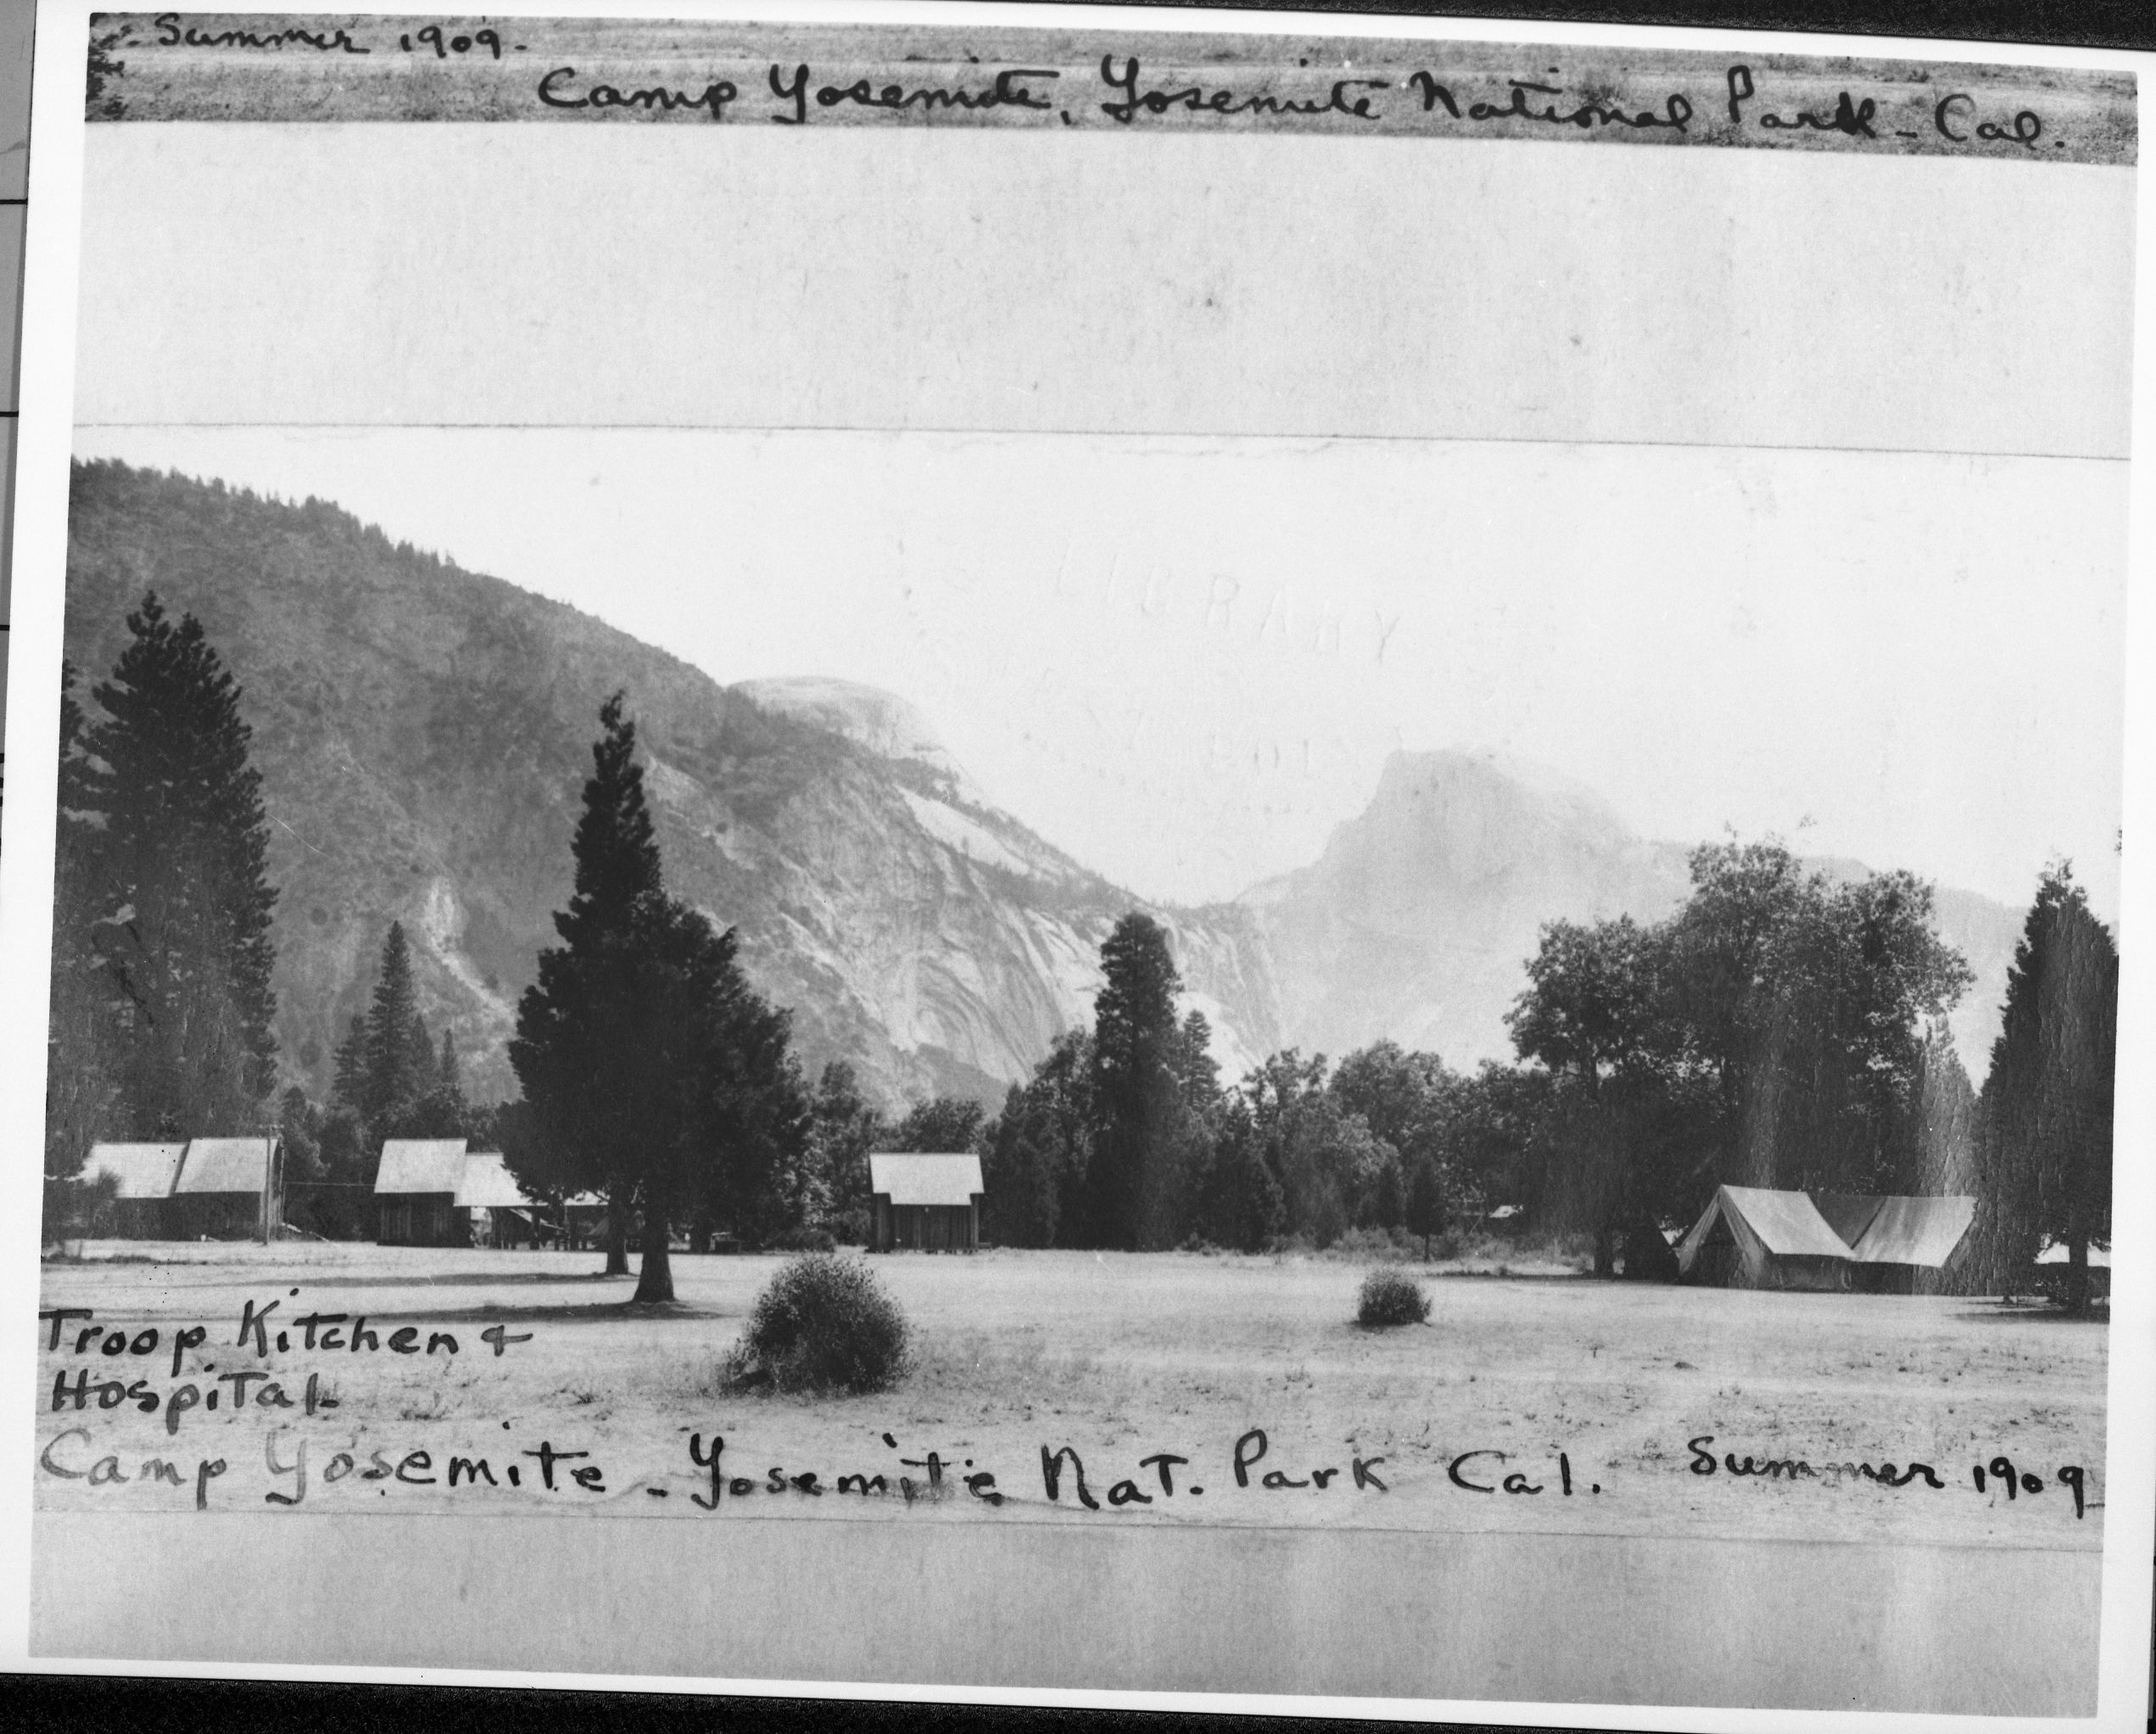 Summer 1909-
Camp Yosemite, Yosemite National Park - Cal.
LIBRARY
Troop Kitchen &
Hospital
Camp Yosemite - Yosemite Nat. Park Cal. Summer 1909